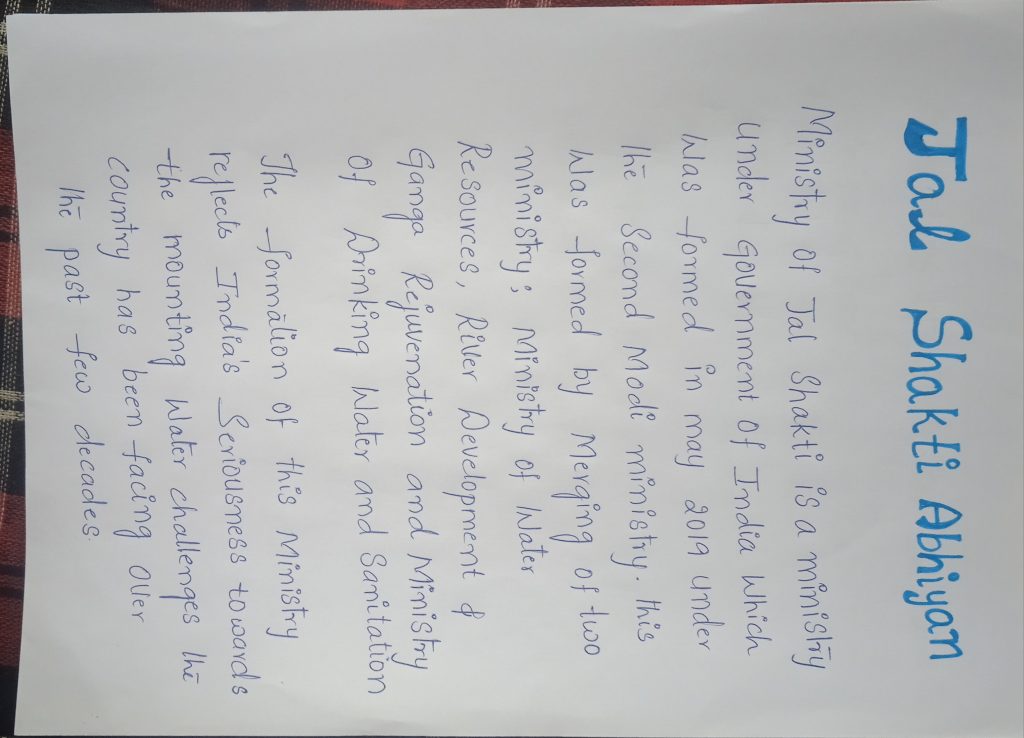 Jal Shakti Abhiyan
Ministry of Jal Shakti is a ministry
under government of India which
was formed in may 2019 under
the second Modi ministry. this
was formed by Merging of two
ministry; ministry of Water
Resources, River Development &
Ganga Rejuvenation and Ministry
of Drinking Water and Sanitation
The formation of this Ministry
reflects India's Seriousness towards
the mounting Water challenges the
country has been facing over
the past few decades.